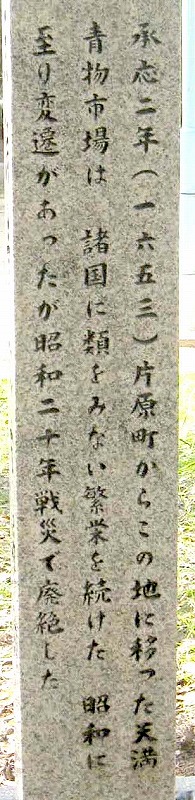 承応二年(一六五三)片原町からこの地に移った天満
青物市場は 諸国に類をみない繁栄を続けた 昭和に
至り変遷があったが昭和二十年戦災で廃絶した